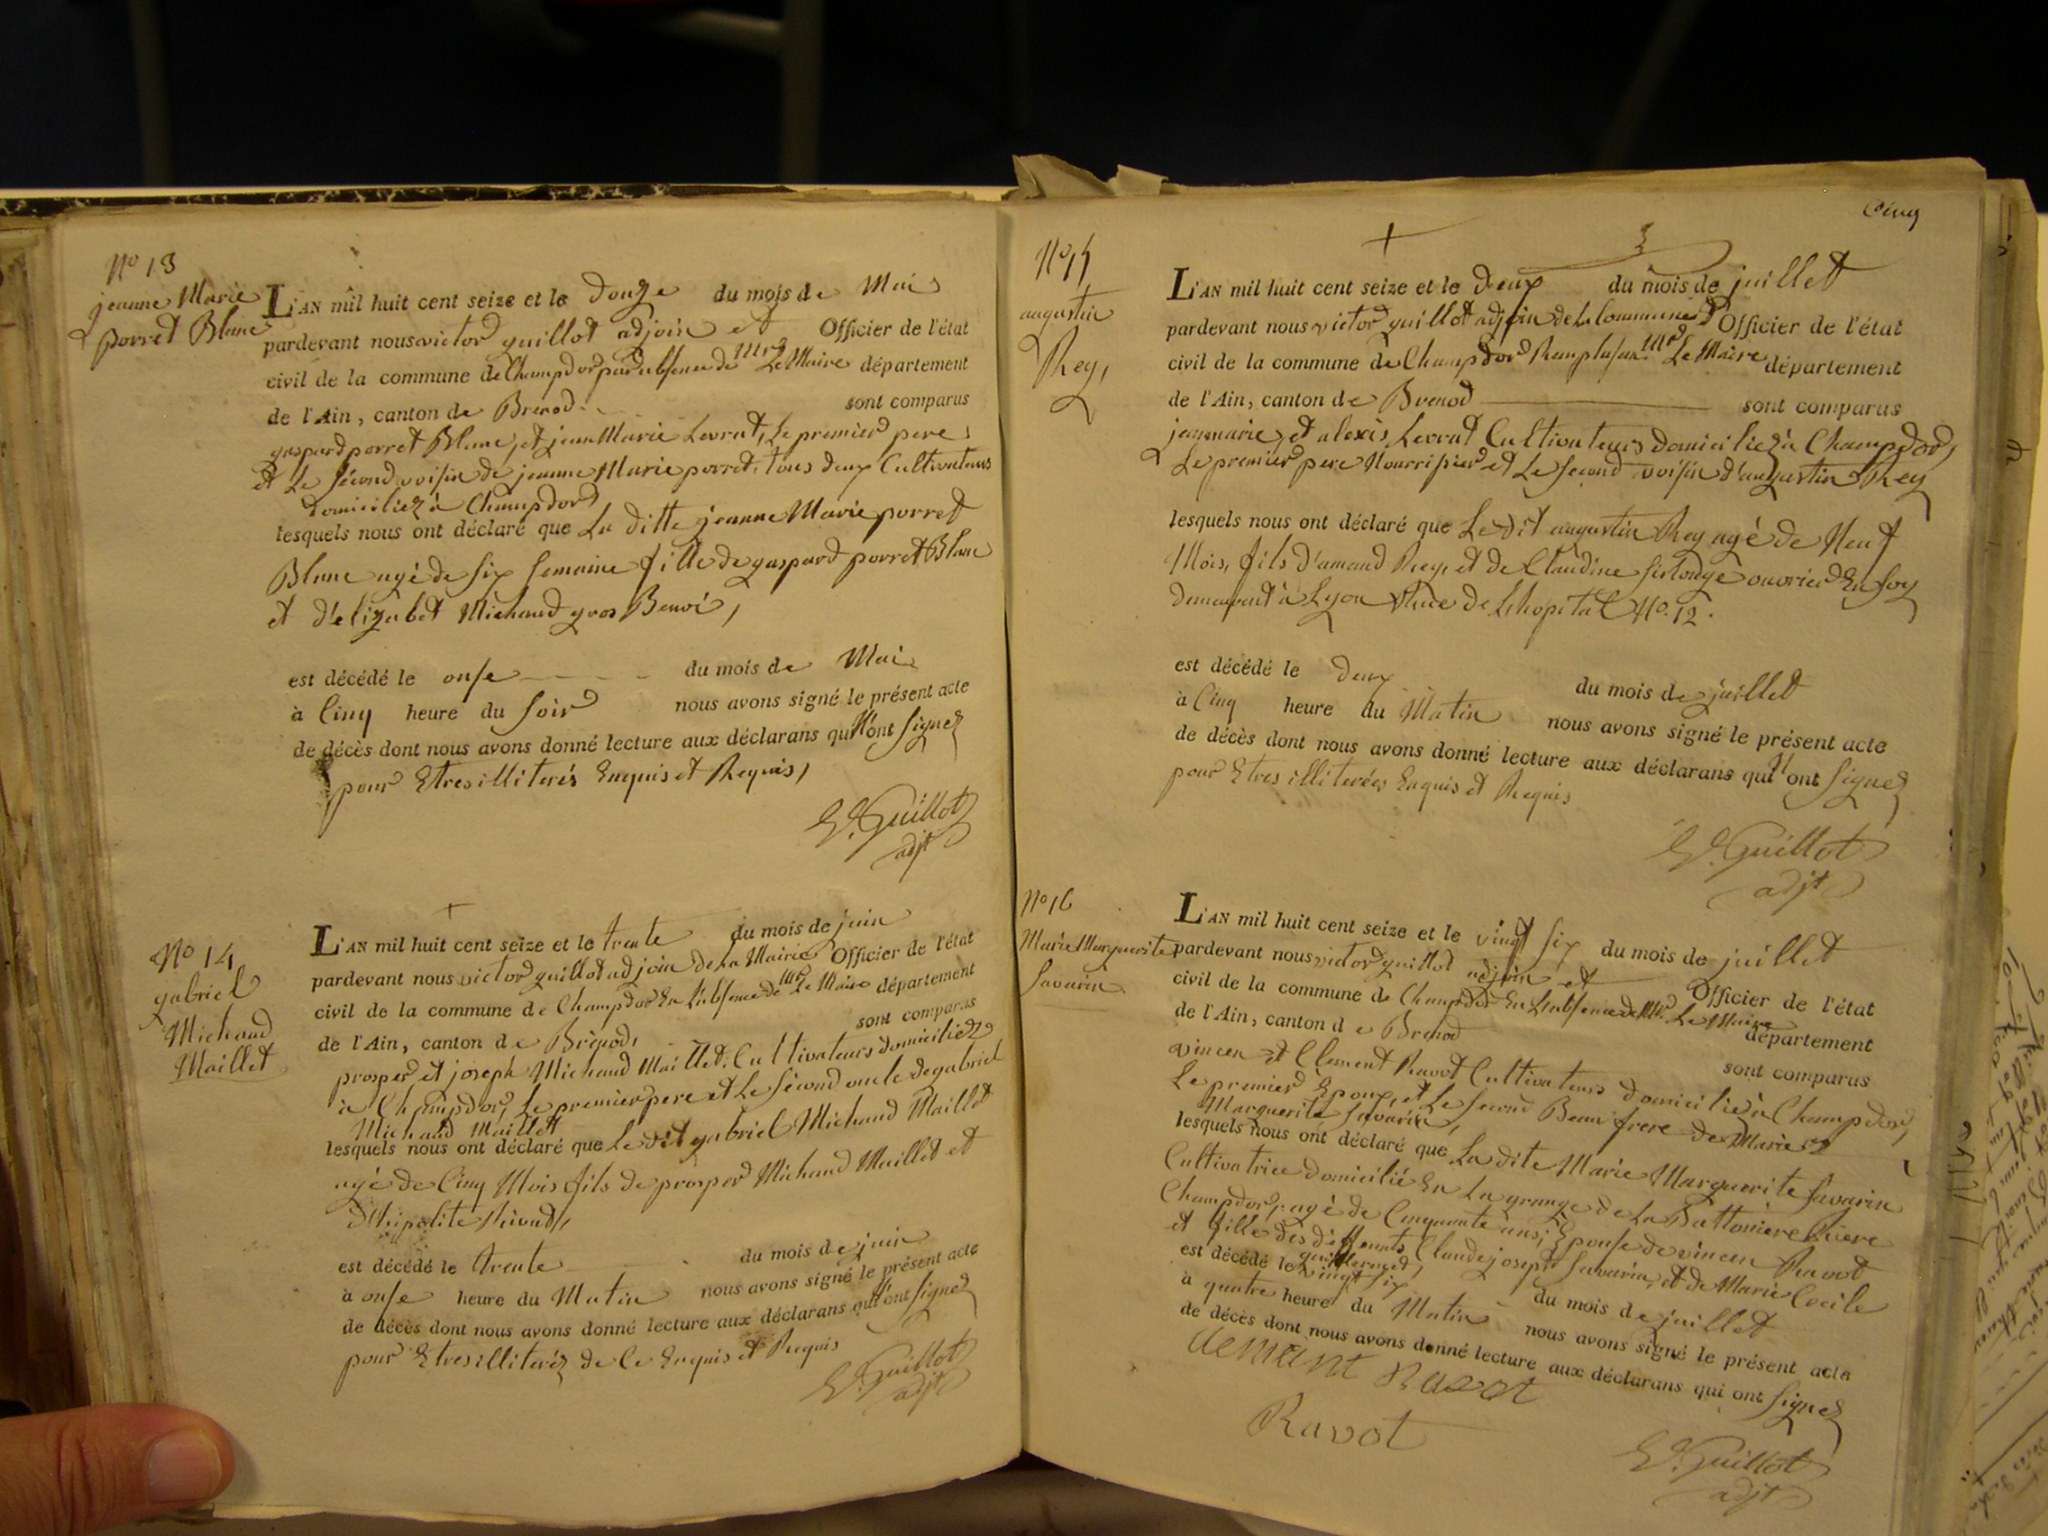 No 13
jeanne Marie
porret Blanc
L'AN mil huit cent seize et le douze du mois de Mai
pardevant nous victor guillot adjoin et Officier de l'état
civil de la commune de Champdor par absence de Mr Le Maire département
de l'Ain, canton de Brenod. sont comparus
gaspard porret Blanc, et jean Marie Levrat, Le premier pere
et Le sécond voisin de jeanne Marie porret, tous deux Cultivateurs
domiciliez à Champdor
lesquels nous ont déclaré que La ditte jeanne Marie porret
Blanc agé de six semaine fille de gaspard porret Blanc
et d'elizabet Michaud gros Benoi,
est décédé le onse du mois de Mai
à Cinq heure du soir nous avons signé le présent acte
de décès dont nous avons donné lecture aux déclarans qui n'ont signez
pour Etres illiterés Enquis et Requis,
Guillot
adjt
No 14
gabriel
Michaud
Maillet
L'AN mil huit cent seize et le trente du mois de juin
pardevant nous victor guillot adjoin de La Mairie Officier de l'état
civil de la commune de Champdor En L'absence de Mr Le Maire département
de l'Ain, canton de Brénod, sont comparus
prosper et joseph Michaud Maillet, Cultivateurs domiciliez
à Champdor, Le premier pere et Le sécond oncle de gabriel
Michaud Maillet
lesquels nous ont déclaré que Le dit gabriel Michaud Maillet
agé de Cinq Mois fils de prosper Michaud Maillet et
d'hipolite
est décédé le trente du mois de juin
à onse heure du Matin nous avons signé le présent acte
de décès dont nous avons donné lecture aux déclarans qui n'ont signez
pour Etres illiteréz de Ce Enquis et Requis
Guillot
adjt
Cinq
No 15
augustin
Rey,
L'AN mil huit cent seize et le deux du mois de juillet
pardevant nous victor guillot adjoin de La Commune Officier de l'état
civil de la commune de Champdor Remplasan Mr Le Maire département
de l'Ain, canton de Brenod sont comparus
jeanmarie, et alexis Levrat Cultivateurs domiciliez à Champdor,
Le premier pere Nourrisier et Le second voisin d'augustin Rey
lesquels nous ont déclaré que Le dit augustin Rey agé de Neuf
Mois, fils d'amand Rey, et de Claudine ouvrier En soy
demeurant à Lyon place de Lhopital No. 12.
est décédé le deux du mois de juillet
à Cinq heure du Matin nous avons signé le présent acte
de décès dont nous avons donné lecture aux déclarans qui n'ont signez
pour Etres illiterées Enquis et Requis
Guillot
adjt
No 16
Marie Marguerite
Savarin
L'AN mil huit cent seize et le vingt six du mois de juillet
pardevant nous victor guillot adjoin et Officier de l'état
civil de la commune de Champdor En L'absence de Mr. Le Maire département
de l'Ain, canton de Brenod sont comparus
vincen et Clement Ravot Cultivateurs domicilié à Champdor,
Le premier Epoux, et Le second Beau frere de Marie
Marguerite Savarin,
lesquels nous ont déclaré que La dite Marie Marguerite Savarin
Cultivatrice domicilié En La grange de La
Champdor, agé de Cinquante ans, Epouse de vincen Ravot
et fille des deffunts Claude joseph Savarin, et de Marie Cecile
guillermet,
est décédé le vingt six du mois de juillet
à quatre heure du Matin nous avons signé le présent acte
de décès dont nous avons donné lecture aux déclarans qui ont signez
clemant Ravot
Ravot
Guillot
adjt